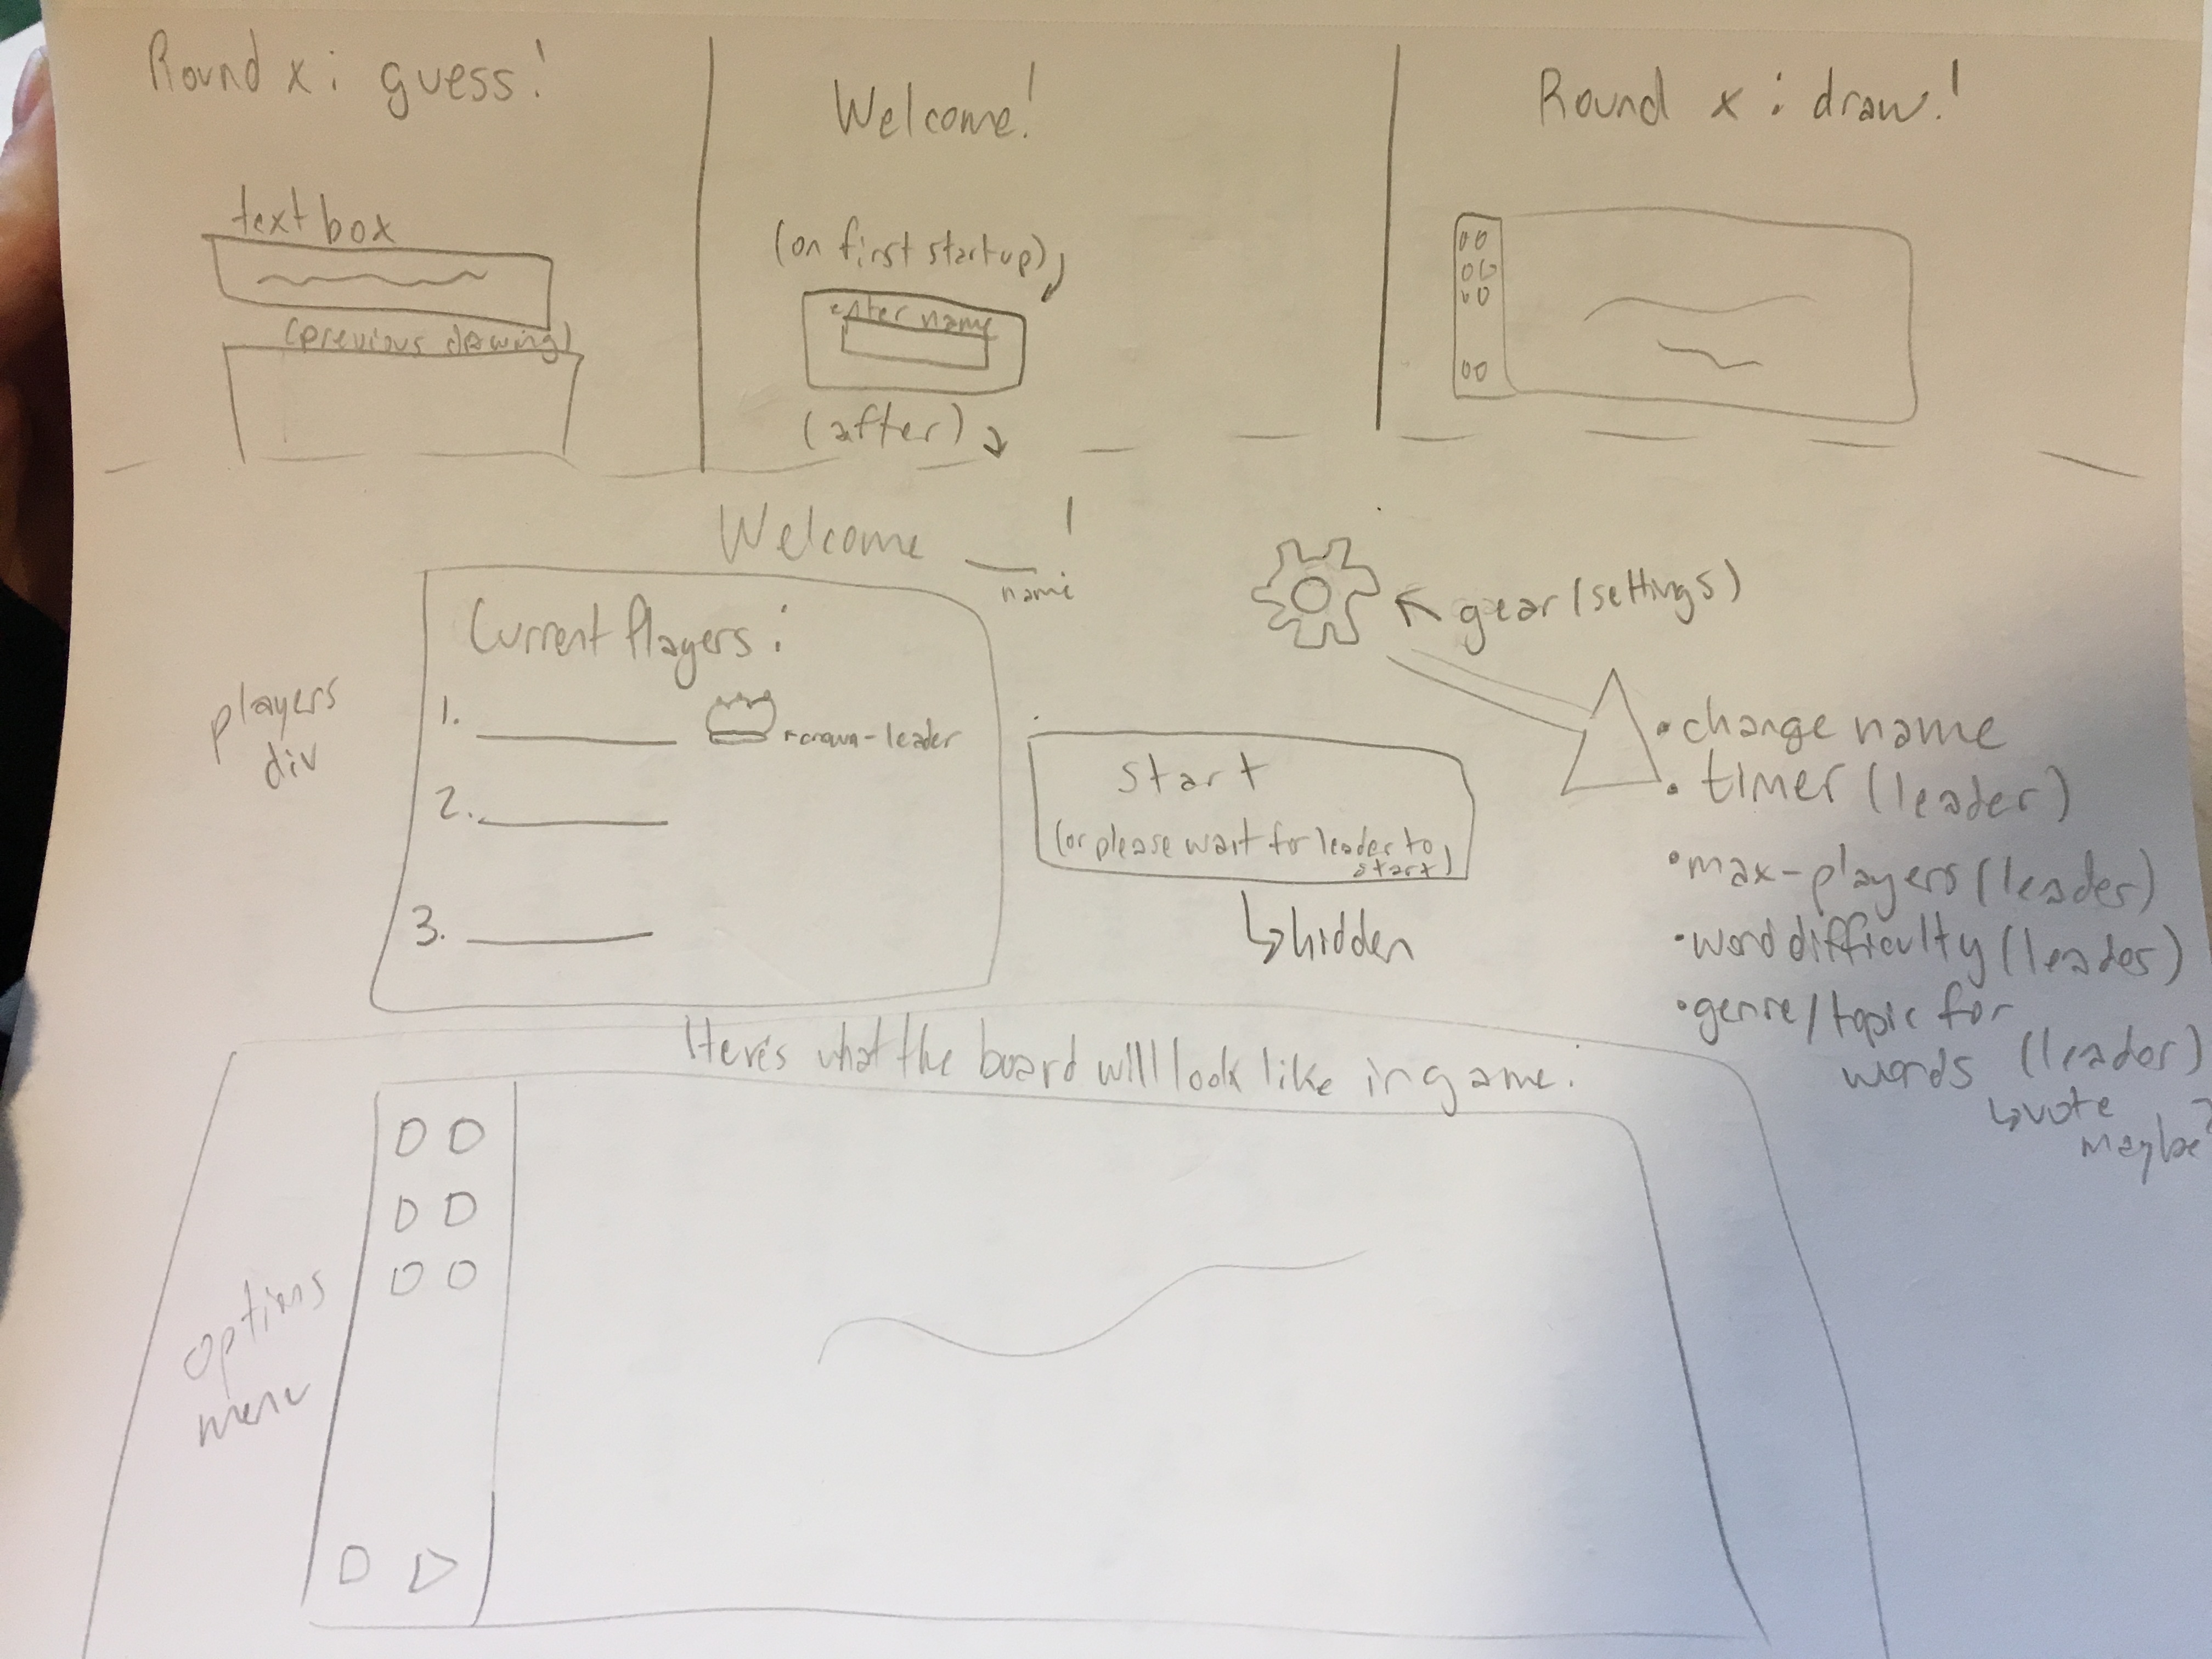 Round x : guess!
text box
(previous drawing)
Welcome!
(on first startup)
enter name
(after)
Round x : draw!
Welcome ___!
name
Current Players:
1.
crown-leader
2.
3.
players
div
start
(or please wait for leader to
start)
hidden
gear (settings)
• change name
• timer (leader)
• max-players (leader)
• word difficulty (leader)
• genre/topic for
words (leader)
vote
maybe?
Here's what the board will look like in game:
options
menu